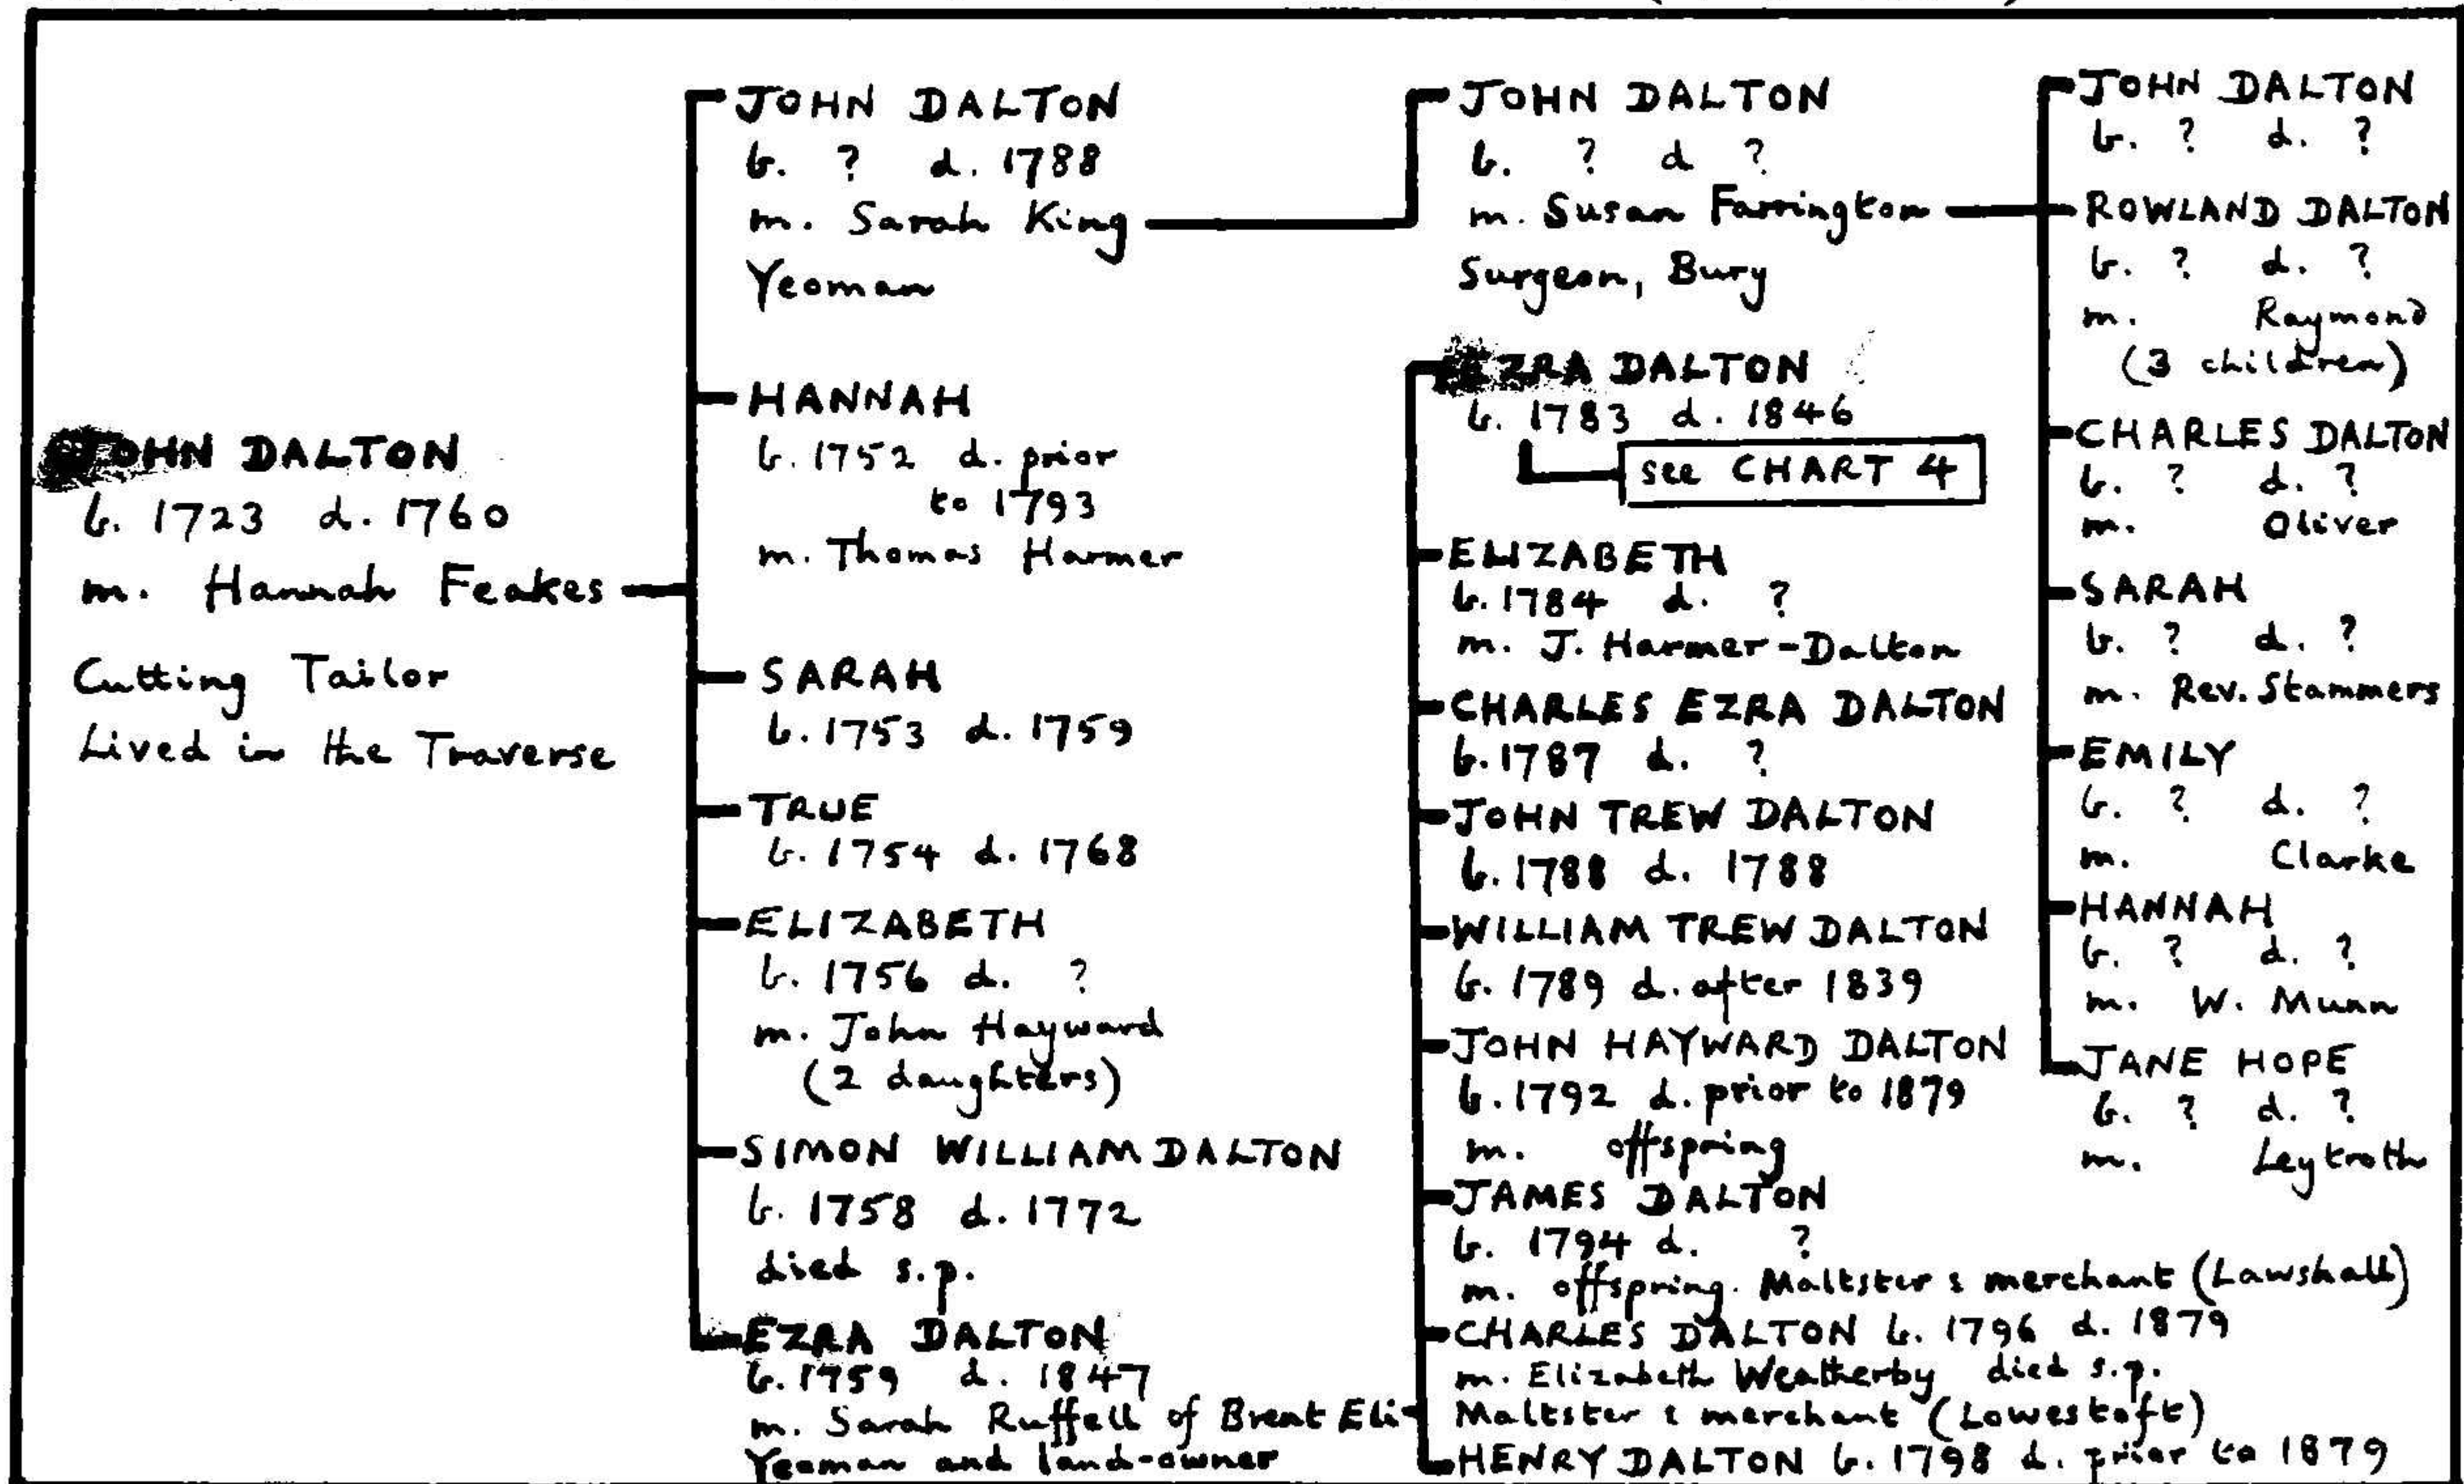 JOHN DALTON
b. 1723 d. 1760
m. Hannah Feakes
Cutting Tailor
Lived in the Traverse
JOHN DALTON
b. ? d. 1788
m. Sarah King
Yeoman
HANNAH
b. 1752 d. prior
to 1793
m. Thomas Harmer
SARAH
b. 1753 d. 1759
TRUE
b. 1754 d. 1768
ELIZABETH
b. 1756 d. ?
m. John Hayward
(2 daughters)
SIMON WILLIAM DALTON
b. 1758 d. 1772
died s.p.
EZRA DALTON
b. 1759 d. 1847
m. Sarah Ruffell of Brent Eli
Yeoman and land-owner
JOHN DALTON
b. ? d ?
m. Susan Farrington
Surgeon, Bury
EZRA DALTON
b. 1783 d. 1846
see CHART 4
ELIZABETH
b. 1784 d. ?
m. J. Harmer-Dalton
CHARLES EZRA DALTON
b. 1787 d. ?
JOHN TREW DALTON
b. 1788 d. 1788
WILLIAM TREW DALTON
b. 1789 d. after 1839
JOHN HAYWARD DALTON
b. 1792 d. prior to 1879
m. offspring
JAMES DALTON
b. 1794 d. ?
m. offspring. Maltster & merchant (Lawshall)
CHARLES DALTON b. 1796 d. 1879
m. Elizabeth Weatherby died s.p.
Maltster & merchant (Lowestoft)
HENRY DALTON b. 1798 d. prior to 1879
JOHN DALTON
b. ? d. ?
ROWLAND DALTON
b. ? d. ?
m. Raymond
(3 children)
CHARLES DALTON
b. ? d. ?
m. Oliver
SARAH
b. ? d. ?
m. Rev. Stammers
EMILY
b. ? d. ?
m. Clarke
HANNAH
b. ? d. ?
m. W. Munn
JANE HOPE
b. ? d. ?
m. Leytroth